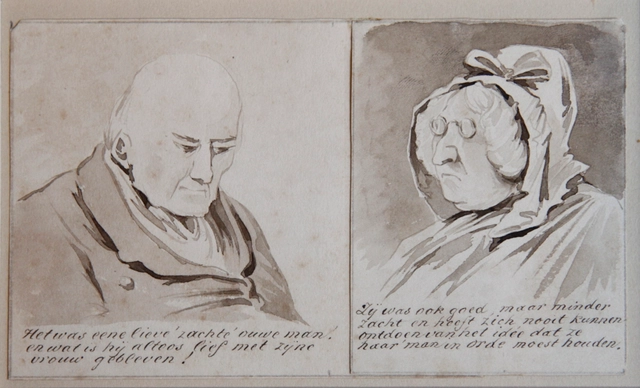 Het was eene lieve 'zachte' ouwe man.
en wat is hij altoos lief met zijne
vrouw gebleven!
Zij was ook goed, maar minder
zacht en heeft zich nooit kunnen
ontdoen van het idee dat ze
haar man in orde moest houden.